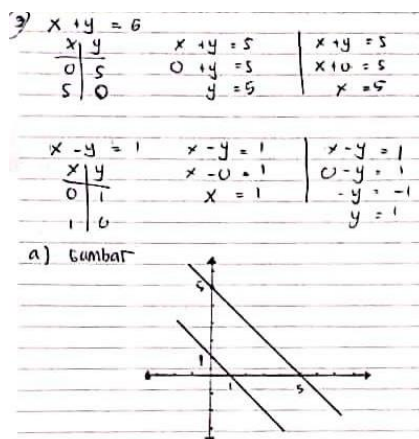 3) x + y = 6
x | y
0 | 5
5 | 0
x + y = 5
0 + y = 5
y = 5
x + y = 5
x + 0 = 5
x = 5
x - y = 1
x | y
0 | 1
1 | 0
x - y = 1
x - 0 = 1
x = 1
x - y = 1
0 - y = 1
-y = -1
y = 1
a) Gambar
5
1
1
5